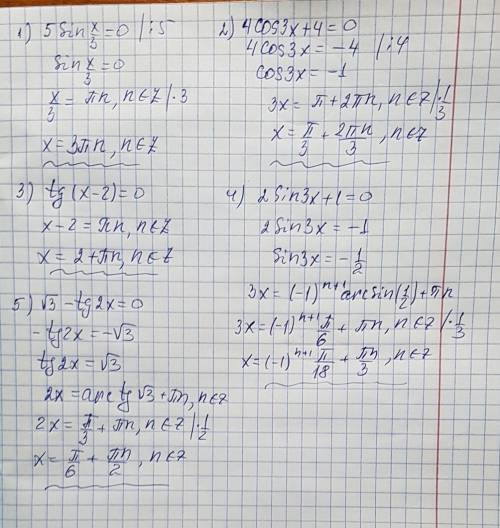 1) 5 sin x/3 = 0 | :5
sin x/3 = 0
x/3 = πn, n∈Z | ·3
x = 3πn, n∈Z
2) 4cos3x + 4 = 0
4cos3x = -4 | :4
cos3x = -1
3x = π + 2πn, n∈Z | · 1/3
x = π/3 + 2πn/3, n∈Z
3) tg(x-2) = 0
x - 2 = πn, n∈Z
x = 2 + πn, n∈Z
4) 2sin3x + 1 = 0
2sin3x = -1
sin3x = -1/2
3x = (-1)^(n+1) arcsin(1/2) + πn
3x = (-1)^(n+1) π/6 + πn, n∈Z | · 1/3
x = (-1)^(n+1) π/18 + πn/3, n∈Z
5) √3 - tg2x = 0
-tg2x = -√3
tg2x = √3
2x = arctg√3 + πn, n∈Z
2x = π/3 + πn, n∈Z | · 1/2
x = π/6 + πn/2, n∈Z